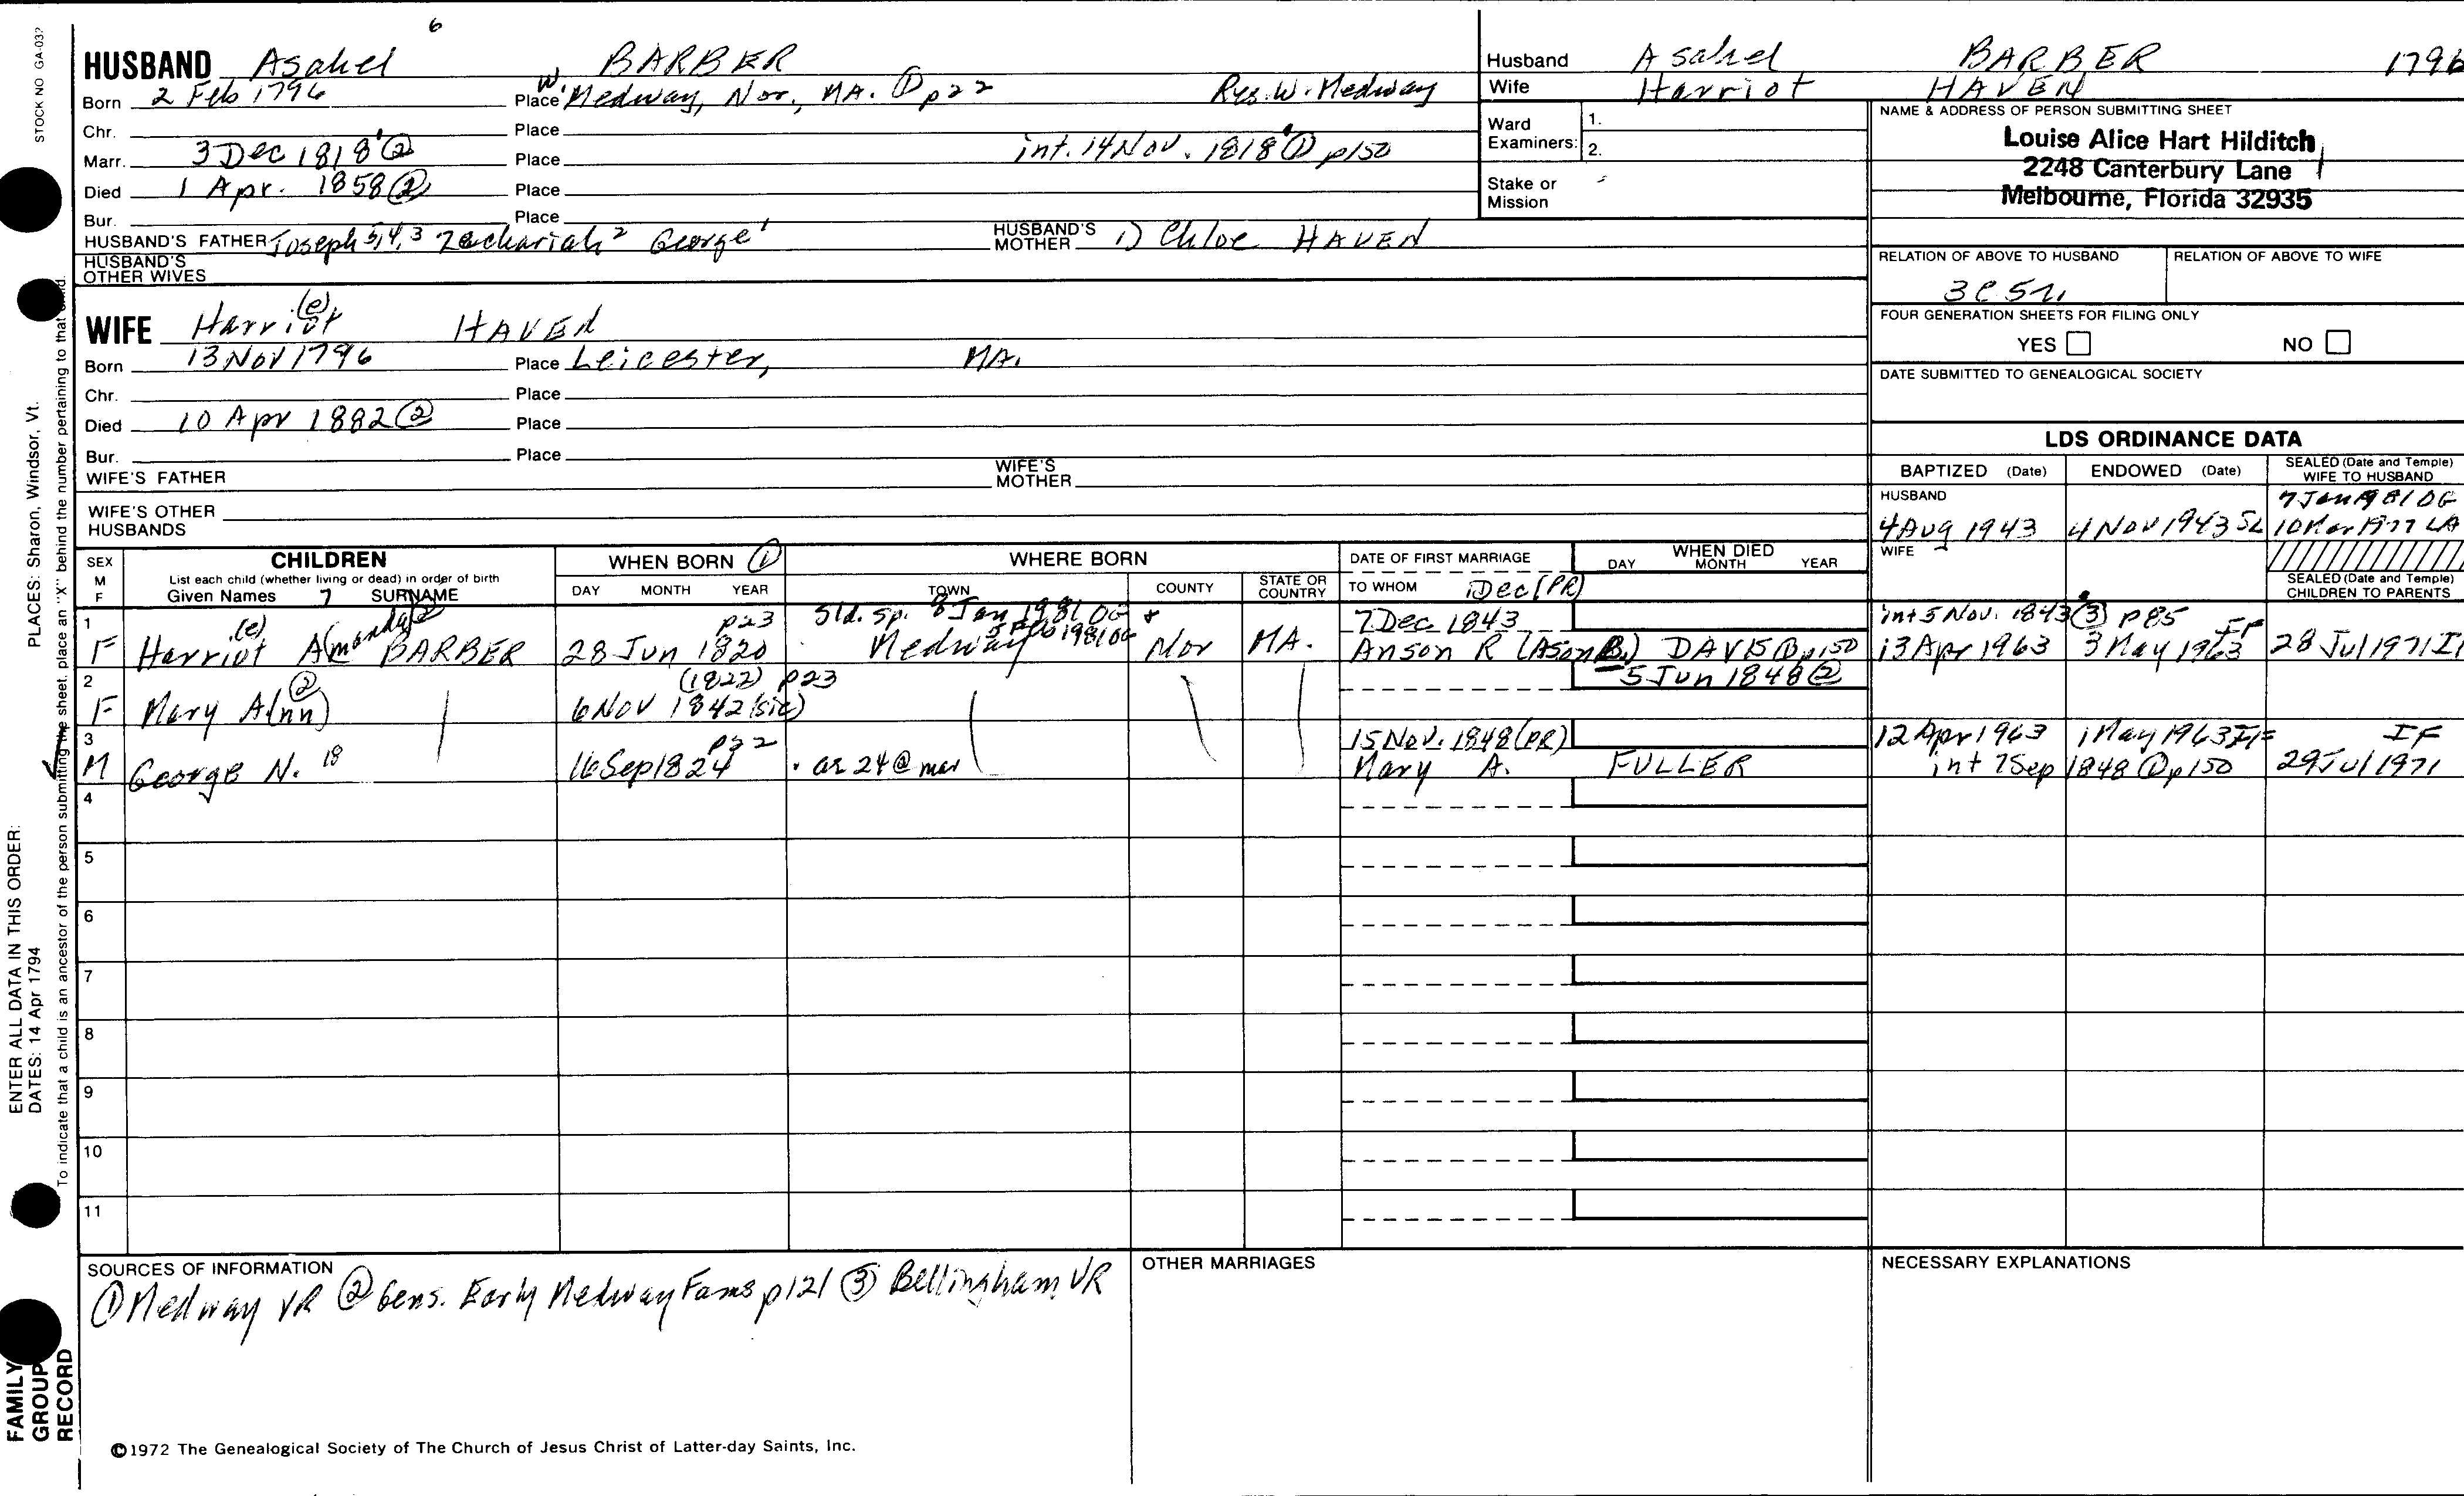 6
HUSBAND Asahel BARBER
Born 2 Feb 1796 Place W. Medway, Nor., MA. ① p22 Res. W. Medway
Chr. Place
Marr. 3 Dec 1818 ② Place int. 14 Nov. 1818 ① p150
Died 1 Apr. 1858 ② Place
Bur. Place
HUSBAND'S FATHER Joseph 5,4,3 Zachariah 2 George 1 HUSBAND'S MOTHER 1) Chloe HAVEN
HUSBAND'S OTHER WIVES
WIFE Harriot (e) HAVEN
Born 13 Nov 1796 Place Leicester, MA.
Chr. Place
Died 10 Apr 1882 ② Place
Bur. Place
WIFE'S FATHER WIFE'S MOTHER
WIFE'S OTHER HUSBANDS
Husband Asahel BARBER 1796
Wife Harriot HAVEN
Ward Examiners: 1.
2.
Stake or Mission
NAME & ADDRESS OF PERSON SUBMITTING SHEET
Louise Alice Hart Hilditch
2248 Canterbury Lane
Melbourne, Florida 32935
RELATION OF ABOVE TO HUSBAND RELATION OF ABOVE TO WIFE
FOUR GENERATION SHEETS FOR FILING ONLY
YES NO
DATE SUBMITTED TO GENEALOGICAL SOCIETY
LDS ORDINANCE DATA
BAPTIZED (Date) ENDOWED (Date) SEALED (Date and Temple) WIFE TO HUSBAND
HUSBAND 7 Jan 1981 OG
4 Aug 1943 4 Nov 1943 SL 10 Mar 1977 LA
WIFE
SEALED (Date and Temple) CHILDREN TO PARENTS
SEX M F CHILDREN WHEN BORN ① WHERE BORN DATE OF FIRST MARRIAGE WHEN DIED
List each child (whether living or dead) in order of birth
Given Names 7 SURNAME DAY MONTH YEAR TOWN COUNTY STATE OR COUNTRY TO WHOM Dec (PR) DAY MONTH YEAR
1 (e) p23 Sld. sp. 8 Jan 1981 OG & 7 Dec 1843 int 5 Nov. 1843 ③ p85
5 Feb 1981 OG
F Harriot A(manda ② BARBER 28 Jun 1820 Medway Nor MA. Anson R (Ason B.) DAVIS ① p150 13 Apr 1963 3 May 1963 IF 28 Jul 1971 IF
2 ② (1822) p23 5 Jun 1848 ②
F Mary A(nn) 6 Nov 1842 (sic)
3 p22 15 Nov. 1848 (PR) 12 Apr 1963 1 May 1963 IF IF
M George N. 18 16 Sep 1824 . as 24 @ mar Mary A. FULLER int 7 Sep 1848 ① p150 29 Jul 1971
4
5
6
7
8
9
10
11
SOURCES OF INFORMATION OTHER MARRIAGES NECESSARY EXPLANATIONS
① Medway VR ② Gens. Early Medway Fams p121 ③ Bellingham VR
©1972 The Genealogical Society of The Church of Jesus Christ of Latter-day Saints, Inc.
STOCK NO GA-03?
PLACES: Sharon, Windsor, Vt.
ENTER ALL DATA IN THIS ORDER:
DATES: 14 Apr 1794
To indicate that a child is an ancestor of the person submitting the sheet, place an "X" behind the number pertaining to that child.
FAMILY GROUP RECORD